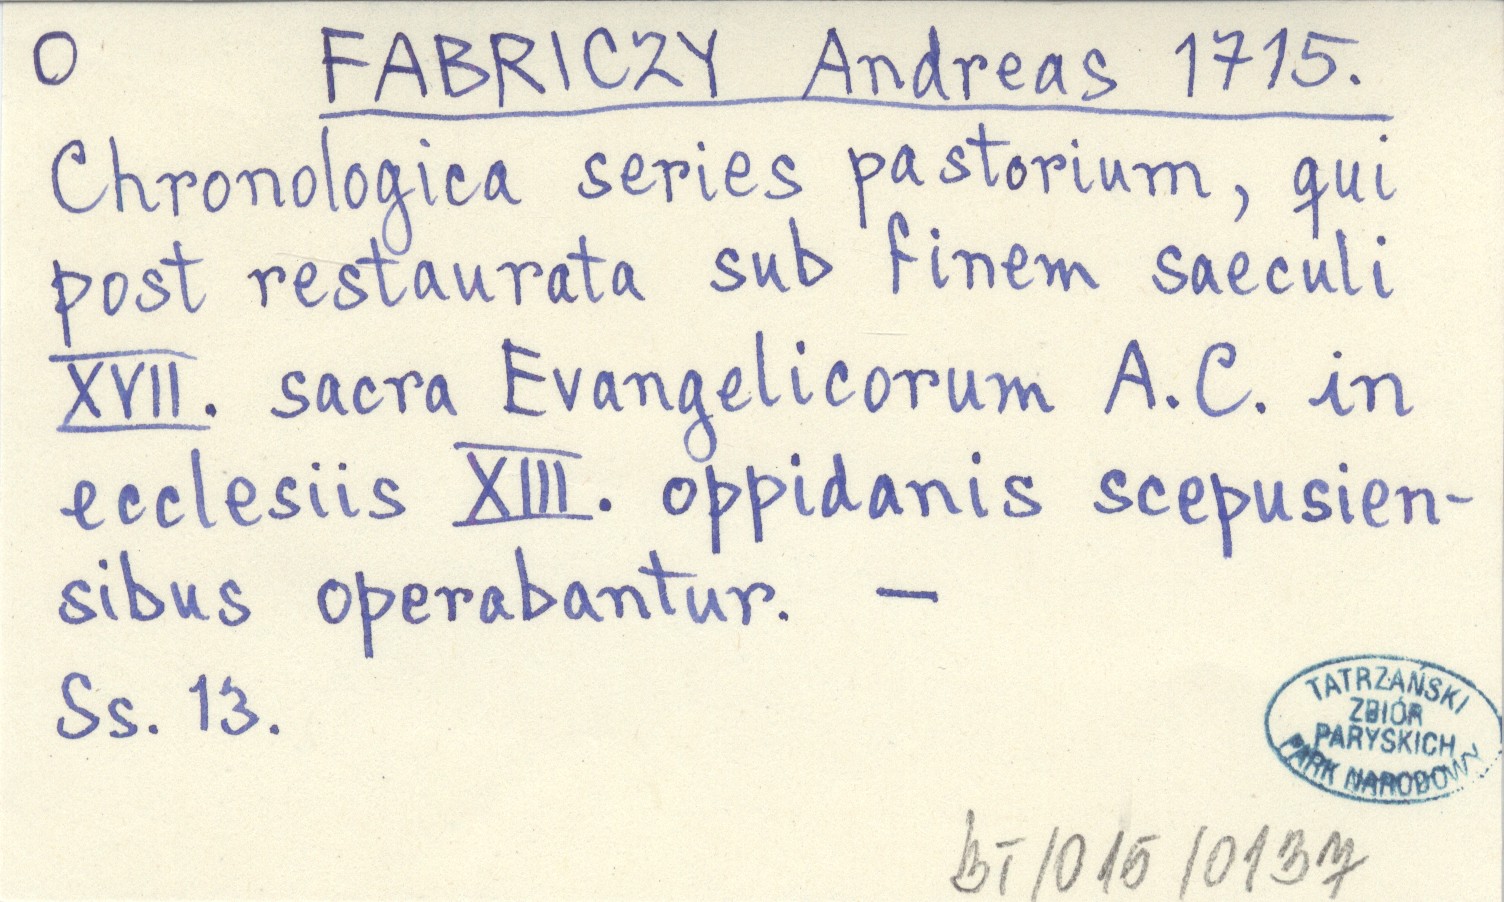 O FABRICZY Andreas 1715.
Chronologica series pastorium, qui
post restaurata sub finem saeculi
XVII. sacra Evangelicorum A.C. in
ecclesiis XIII. oppidanis scepusien-
sibus operabantur. —
Ss. 13.
TATRZAŃSKI
ZBIÓR
PARYSKICH
PARK NARODOWY
BT/015/0137